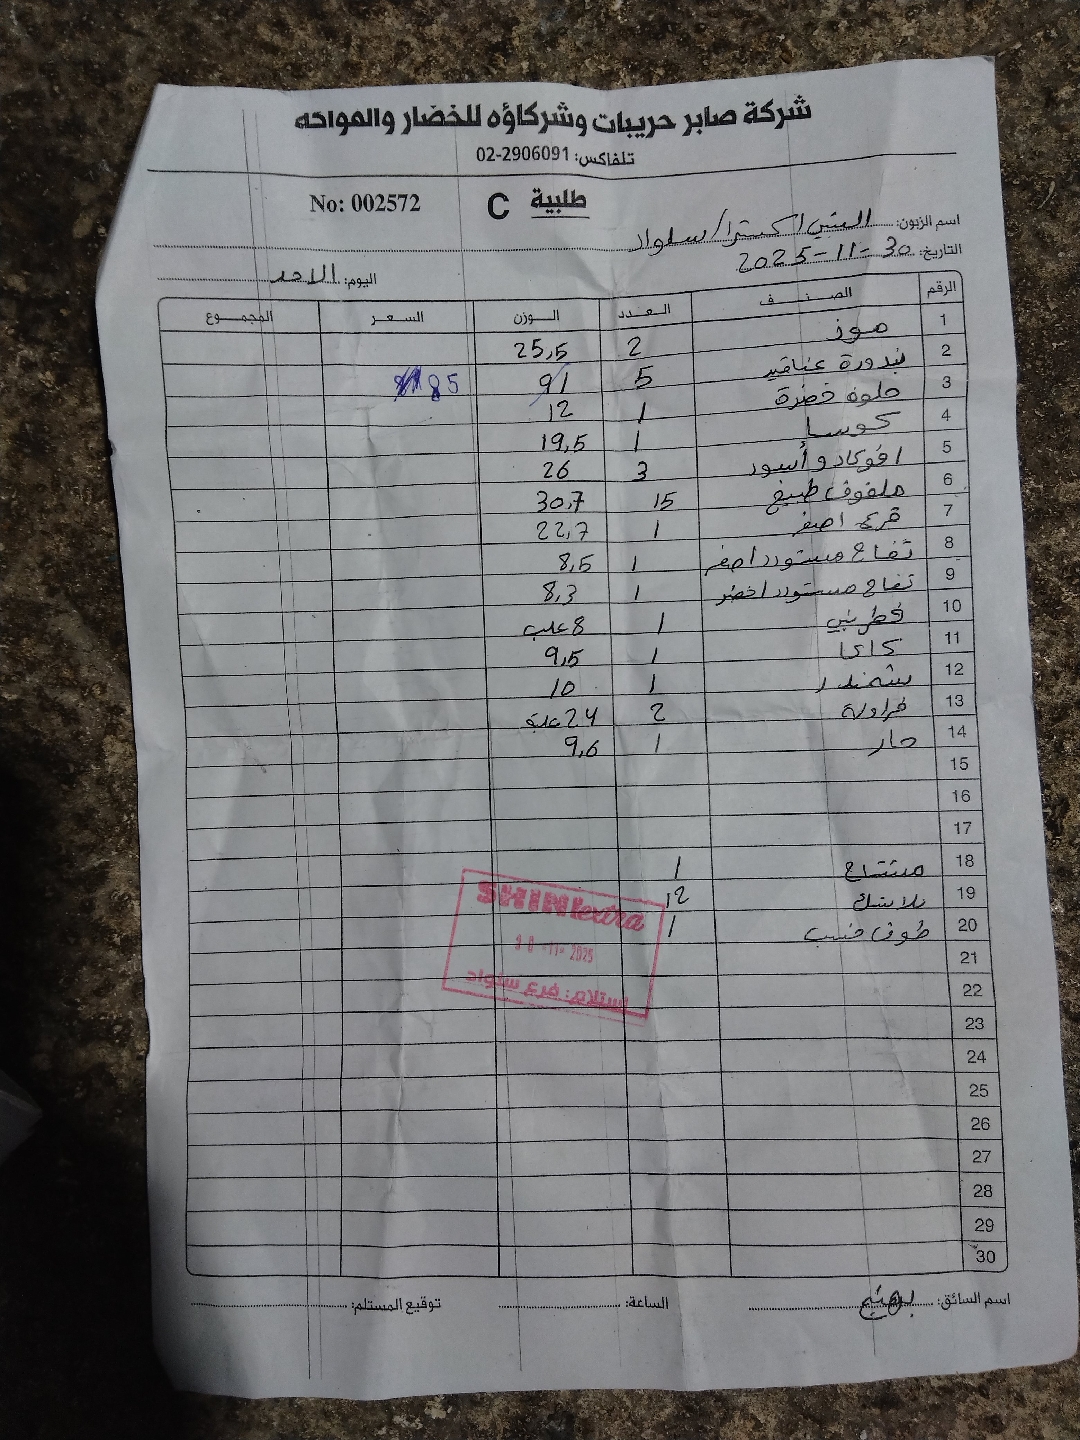 شركة صابر حريبات وشركاؤه للخضار والفواكه
تلفاكس: 02-2906091
طلبية C No: 002572
اسم الزبون: الشني اكسترا/سلواد
التاريخ: 30-11-2025
اليوم: الاحد
الرقم الصنف العدد الوزن السعر المجموع
1 موز 2 25,5
2 بندورة عناقيد 5 91 85
3 حلوه خضرة 1 12
4 كوسا 1 19,5
5 افوكادو أسود 3 26
6 ملفوف طبيخ 15 30,7
7 قرع اصفر 1 22,7
8 تفاح مستورد اصفر 1 8,5
9 تفاح مستورد اخضر 1 8,3
10 فطر بني 1 8 علب
11 كاكا 1 9,5
12 شمندر 1 10
13 فراولة 2 24 علبه
14 حار 1 9,6
15
16
17
18 مشتاح 1
19 بلاستك 12
20 طوف خشب 1
21
22
23
24
25
26
27
28
29
30
SHINI extra
30 -11- 2025
إستلام: فرع سلواد
اسم السائق: الساعة: توقيع المستلم: